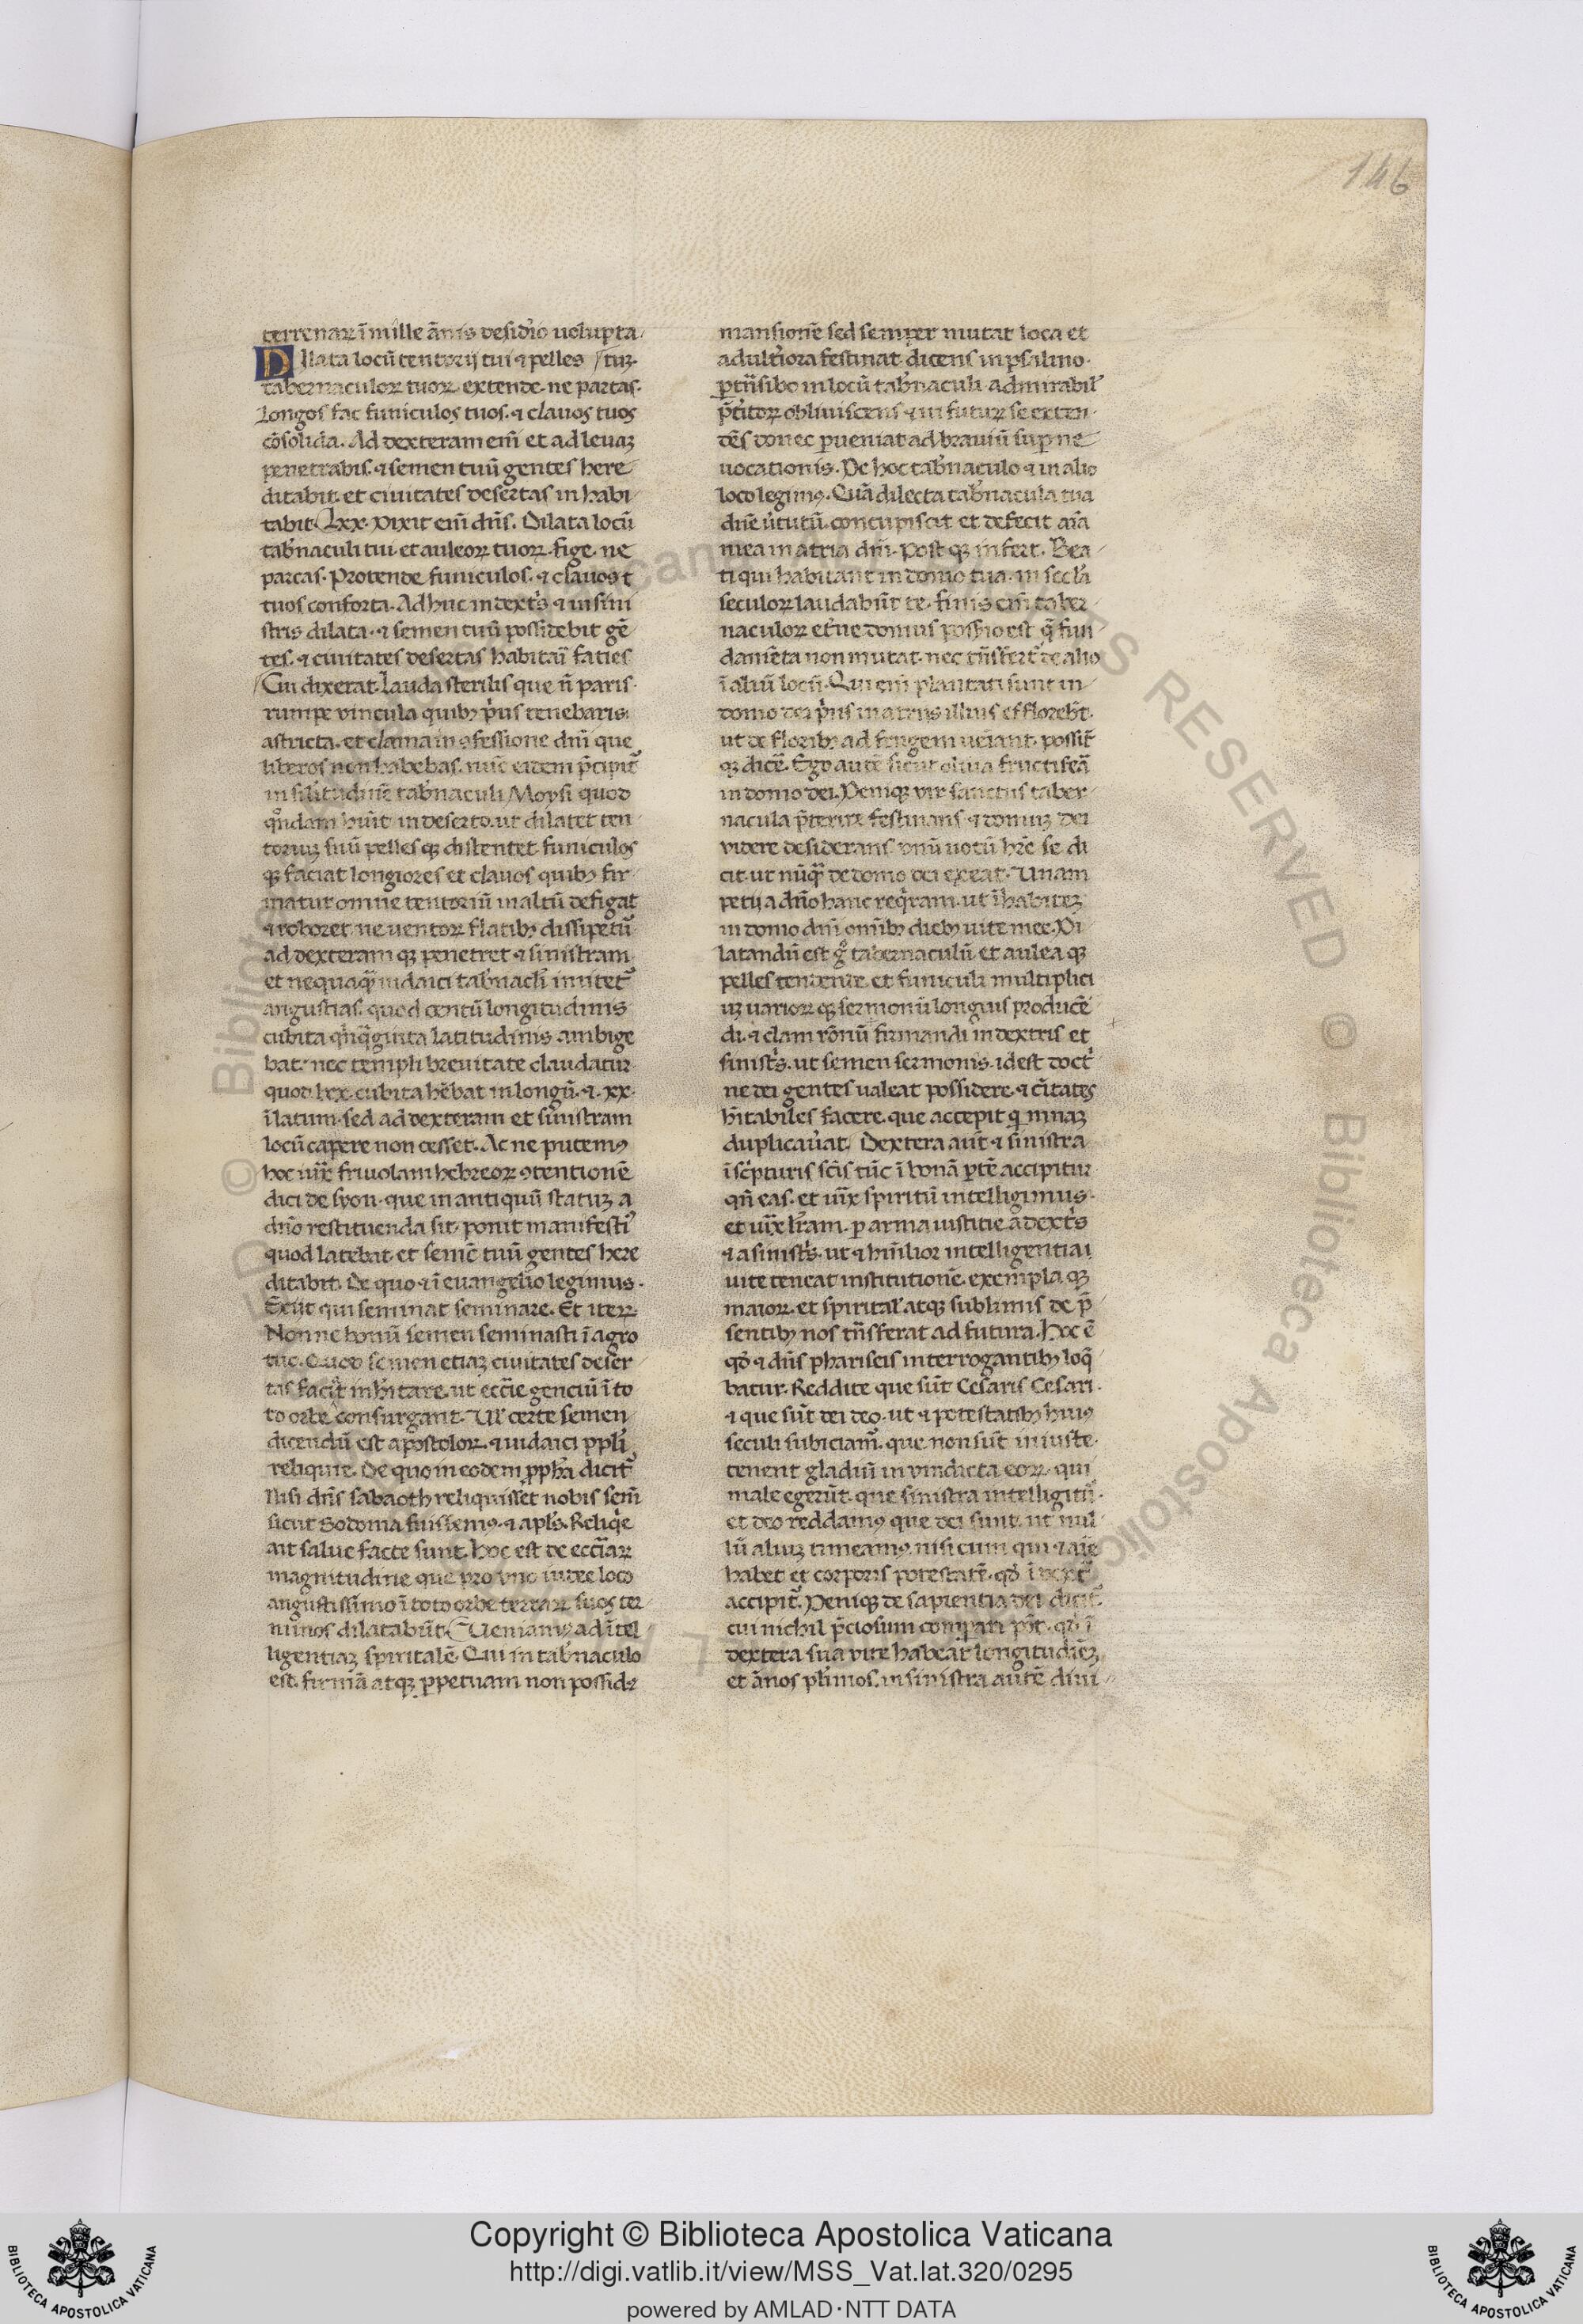 146
terrenaꝝ ī mille ānis desid'io uolupta
Dilata locū tentorij tui ⁊ pelles / tuꝫ.
tabernaculoꝝ tuoꝝ extende. ne parcas.
Longos fac funiculos tuos. ⁊ clauos tuos
cōsolida. Ad dexteram em̄ et ad leuaꝫ
penetrabis. ⁊ semen tuū gentes here
ditabit. et ciuitates desertas in habi
tabit. Lxx. Dixit em̄ dn̄s. Dilata locū
tab'naculi tui. et auleoꝝ tuoꝝ. fige. ne
parcas. Protende funiculos. ⁊ clauos t
tuos conforta. Adhuc in dext's ⁊ in sini
stris dilata. ⁊ semen tuū possidebit gē
tes. ⁊ ciuitates desertas habitari facies
Cui dixerat. Lauda sterilis que n̄ paris.
rumpe vincula quibꝫ p'us tenebaris
astricta. et clama in ꝯfessione dn̄i que
liberos non habebas. nūc eidem p̄cipit'
in similitudinē tab'naculi Moysi quod
q̊ndam fuit in deserto. ut dilatet ten
toriuꝫ suū pelles qꝫ distentet. funiculos
qꝫ faciat longiores et clauos quibꝫ fir
matur omne tentoriū in altū defigat
⁊ roboret. ne uentoꝝ flatibꝫ dissipetur
ad dexteram qꝫ penetret ⁊ sinistram.
et nequaq̄ iudaici tab'nacl'i imitet'
angustias. quod centū longitudinis
cubita qi̓nq̄ginta latitudinis ambige
bat. nec templi breuitate claudatur
quod lxx. cubita hēbat in longū. ⁊ xx.
ī latum. sed ad dexteram et sinistram
locū capere non cesset. Ac ne putemꝰ
hoc iuxͣ friuolam hebreoꝝ ꝯtentionē
dici de syon. que in antiquū statuꝫ a
dn̄o restituenda sit. ponit manifesti'
quod latebat. et semē tuū gentes here
ditabit. De quo ⁊ ī euangelio legimus.
Exiit qui seminat seminare. Et iteꝝ.
Nonne bonū semen seminasti ī agro
tuo. Quod semen etiaꝫ ciuitates deser
tas facit inh'itare. ut eccl'ie genciū ī to
to orbe consurgant. Ul' certe semen
dicendū est apostoloꝝ. ⁊ iudaici ppl'i
reliquie. De quo in eodem ꝓph'a dicit'
Nisi dn̄s sabaoth reliquisset nobis sem̄
sicut Sodoma fuissemꝰ. ⁊ apl's. Reliq'e
ait salue facte sunt. Hoc est de eccl'iaꝝ
magnitudine que pro vno iudee loco
angustissimo ī toto orbe terraꝝ suos ter
minos dilatabūt. Ueniamꝰ ad ītel
ligentiaꝫ spiritalē. Qui in tab'naculo
est. firmā atqꝫ ꝑpetuam non posside
mansionē sed semper mutat loca et
ad ult'iora festinat. dicens in psalmo.
ꝑtn̄sibo in locū tab'naculi admirabil'
p̄t'itoꝝ obliuiscens ⁊ in futuꝝ se exten
dēs donec ꝑueniat ad brauiū supne
uocationis. De hoc tab'naculo ⁊ in alio
loco legimꝰ. Quā dilecta tab'nacula tua
dn̄e u'tutū. concupiscit et defecit aīa
mea in atria dn̄i. Post qꝫ infert. Bea
ti qui habitant in domo tua. in secl'a
seculoꝝ laudabūt te. finis em̄ taber
naculoꝝ et'ne domus possessio est. q̄ fun
damēta non mutat. nec tn̄sfert' de alio
ī aliū locū. Qui em̄ plantati sunt in
domo dei p'us in atrijs illius effloreb̄t.
ut de floribꝫ ad frugem ueiant. possit'
qꝫ dicē. Ego autē sicut oliua fructiferā
in domo dei. Deniqꝫ vir sanctus taber
nacula p̄terire festinans ⁊ domuꝫ dei
videre desiderans vnū uotū hr̄e se di
cit. ut nūq̄ de domo dei exeat. Unam
petij a dn̄o hanc req'ram. ut īhabiteꝫ
in domo dn̄i om̄ibꝫ diebꝫ uite mee. Di
latandū est g̊ tabernaculū. et aulea qꝫ
pelles tendende. et funiculi multiplici
uꝫ uarioꝝ qꝫ sermonū longius producē
di. ⁊ clam rōnū firmandi in dextris et
sinist's. ut semen sermonis. idest doct'
ne dei gentes ualeat possidere. ⁊ ci'tates
h'itabiles facere. que accepit q̇ mnaꝫ
duplicau'at. Dextera aut̄ ⁊ sinistra
ī sc'pturis sc̄is tūc ī bonā ꝑtē accipitur
qn̄ eas. et iuxͣ spiritū intelligimus.
et iuxͣ lr̄am. ꝑ arma iustitie a dext's
⁊ a sinist's. ut ⁊ hum̄lior intelligentia ī
uite teneat institutionē. exempla qꝫ
maioꝝ. et spirital' atqꝫ sublimis de p̄
sentibꝫ nos tn̄sferat ad futura. Hoc ē
qd̓ ⁊ dn̄s phariseis interrogantibꝫ loq̄
batur. Reddite que sūt Cesaris Cesari.
⁊ que sūt dei deo. ut ⁊ potestatibꝫ huiꝰ
seculi subiciam'. que non sūt iniuste.
tenent gladiū in vindicta eoꝝ. qui
male egerūt. que sinistra intelligit'.
et deo reddamꝰ que dei sunt. ut nul
lū aliuꝫ timeamꝰ. nisi eum qui ⁊ aīe
habet et corporis potestatē. qd̓ ī dext'
accipit'. Deniqꝫ de sapientia dei dicit'.
cui nichil p̄ciosum compari p̄t. qd̓ ī
dextera sua vite habeat longitudīeꝫ.
et ānos pl'imos. in sinistra autē diui
Copyright © Biblioteca Apostolica Vaticana
http://digi.vatlib.it/view/MSS_Vat.lat.320/0295
powered by AMLAD·NTT DATA
BIBLIOTECA APOSTOLICA VATICANA
BIBLIOTECA APOSTOLICA VATICANA